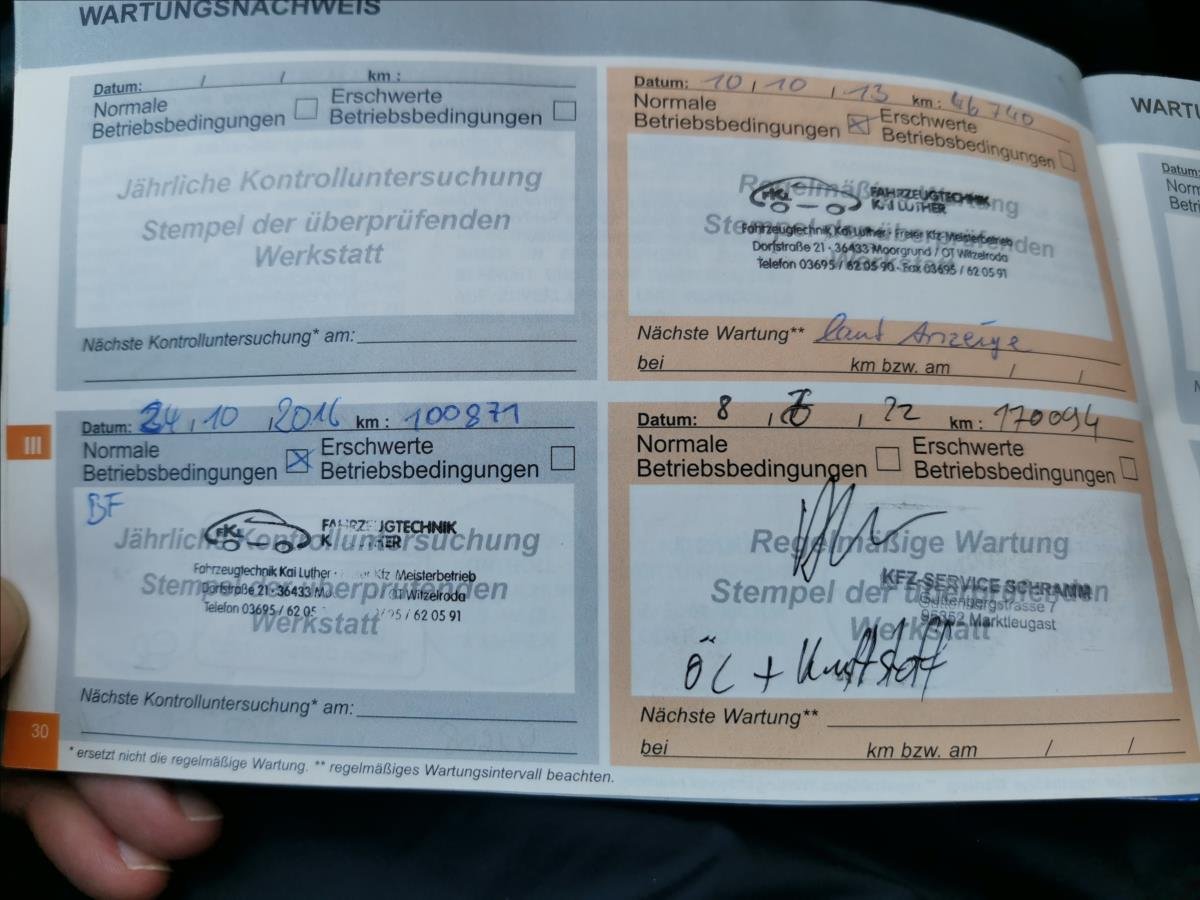 WARTUNGSNACHWEIS
Datum: / / km :
Normale Betriebsbedingungen
Erschwerte Betriebsbedingungen
Jährliche Kontrolluntersuchung
Stempel der überprüfenden
Werkstatt
Nächste Kontrolluntersuchung* am:
Datum: 10 , 10 , 13 km : 46740
Normale Betriebsbedingungen
Erschwerte Betriebsbedingungen
Regelmäßige Wartung
Stempel der überprüfenden
Werkstatt
FKL FAHRZEUGTECHNIK
KAI LUTHER
Fahrzeugtechnik Kai Luther · Freier Kfz-Meisterbetrieb
Dorfstraße 21 · 36433 Moorgrund / OT Witzelroda
Telefon 03695 / 62 05 90 · Fax 03695 / 62 05 91
Nächste Wartung** laut Anzeige
bei km bzw. am / /
III
Datum: 24 , 10 , 2016 km : 100871
Normale Betriebsbedingungen
Erschwerte Betriebsbedingungen
BF
Jährliche Kontrolluntersuchung
Stempel der überprüfenden
Werkstatt
FKL FAHRZEUGTECHNIK
K LUTHER
Fahrzeugtechnik Kai Luther · Kfz Meisterbetrieb
Dorfstraße 21 · 36433 OT Witzelroda
Telefon 03695 / 62 05 / 62 05 91
Nächste Kontrolluntersuchung* am:
Datum: 8 , , 22 km : 170094
Normale Betriebsbedingungen
Erschwerte Betriebsbedingungen
Regelmäßige Wartung
Stempel der überprüfenden
Werkstatt
KFZ-SERVICE SCHRAMM
Guttenbergstrasse 7
95352 Marktleugast
ÖL +
Nächste Wartung**
bei km bzw. am / /
30
* ersetzt nicht die regelmäßige Wartung. ** regelmäßiges Wartungsintervall beachten.
WARTU
Datum: